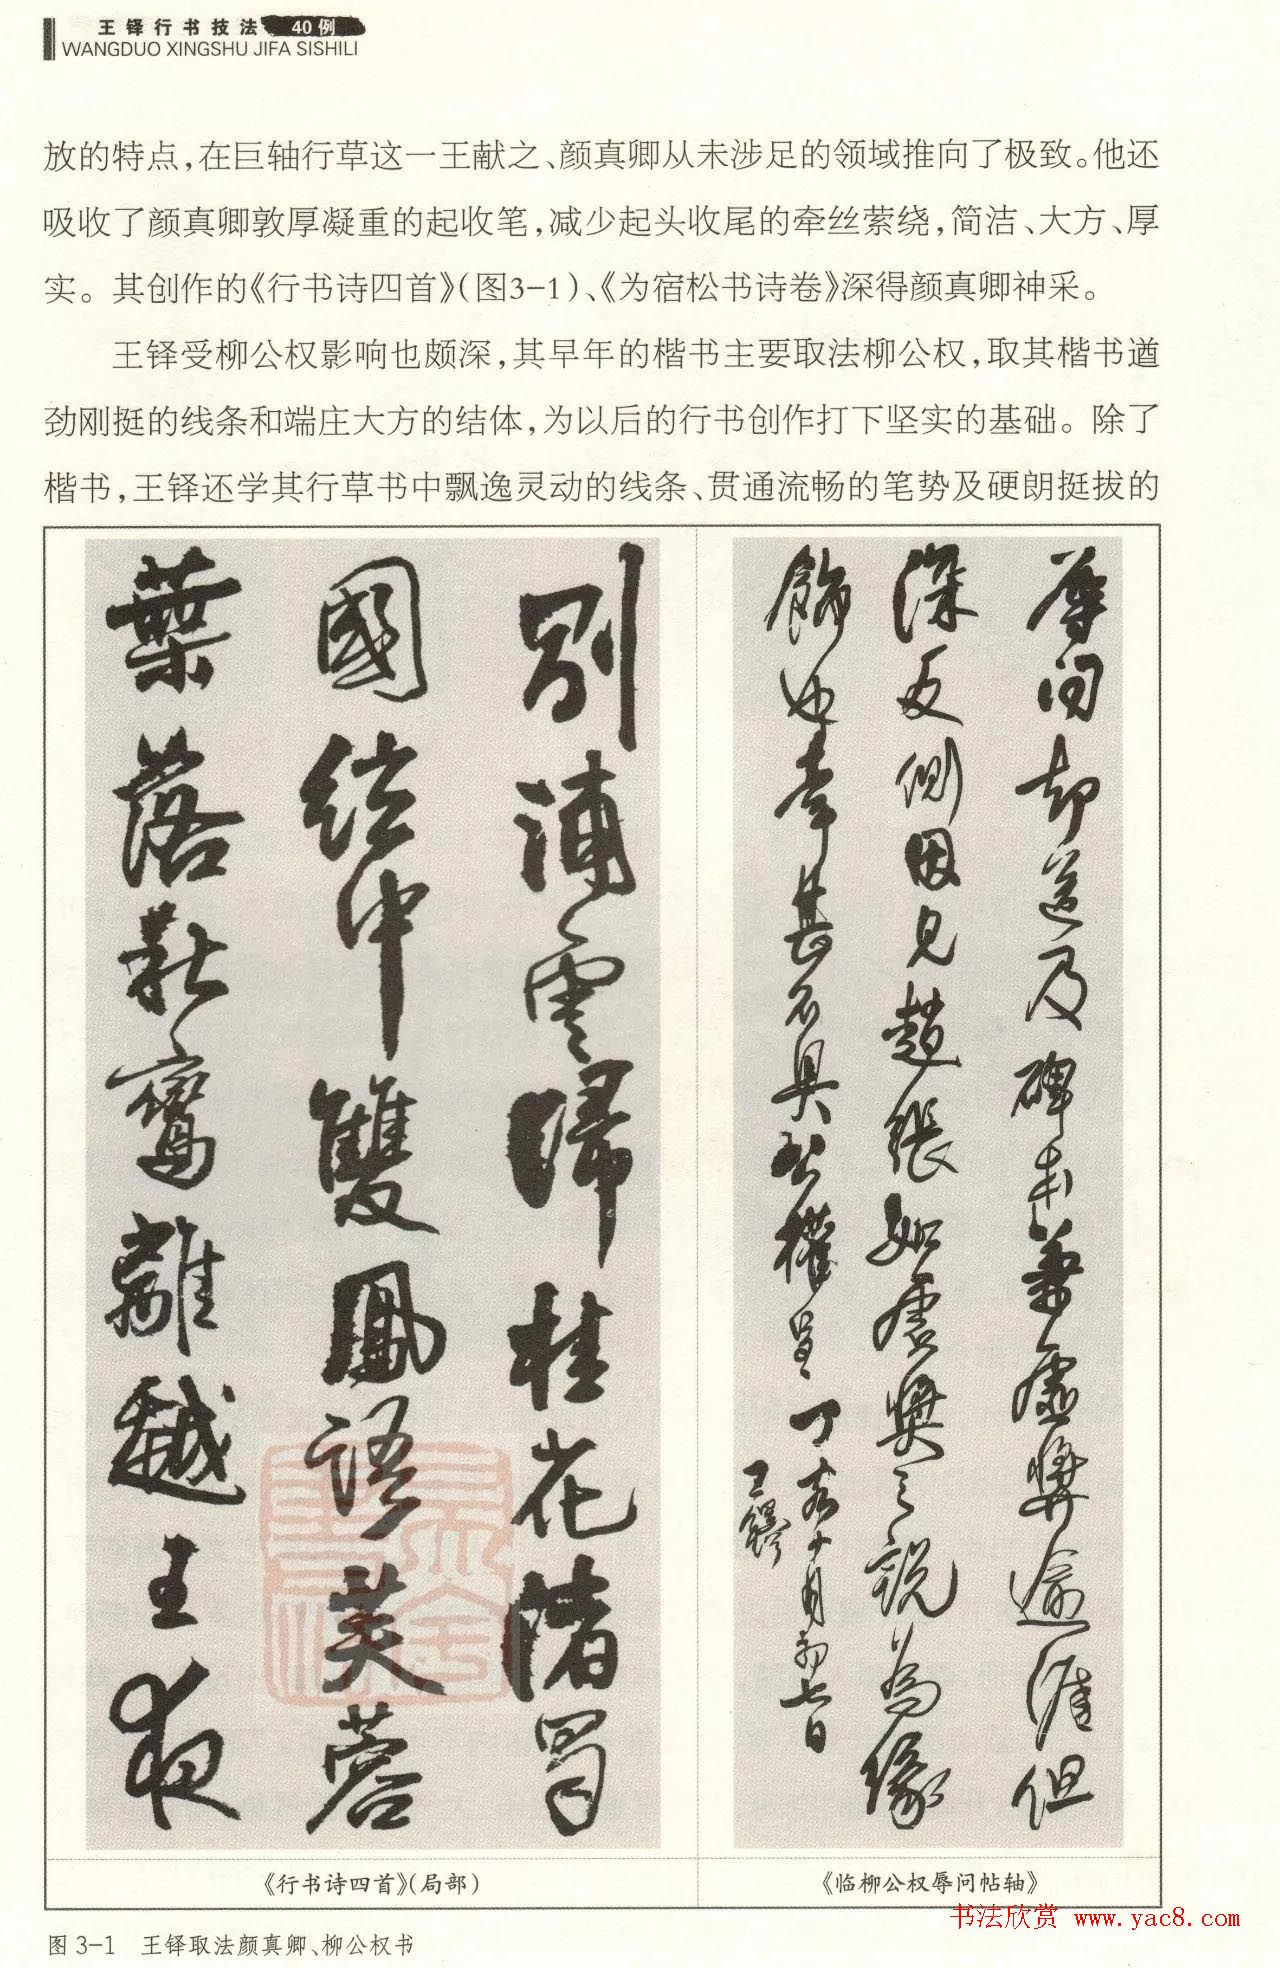 王铎行书技法 40例
WANGDUO XINGSHU JIFA SISHILI
放的特点，在巨轴行草这一王献之、颜真卿从未涉足的领域推向了极致。他还
吸收了颜真卿敦厚凝重的起收笔，减少起头收尾的牵丝萦绕，简洁、大方、厚
实。其创作的《行书诗四首》（图3-1）、《为宿松书诗卷》深得颜真卿神采。
王铎受柳公权影响也颇深，其早年的楷书主要取法柳公权，取其楷书遒
劲刚挺的线条和端庄大方的结体，为以后的行书创作打下坚实的基础。除了
楷书，王铎还学其行草书中飘逸灵动的线条、贯通流畅的笔势及硬朗挺拔的
别浦云歸桂花渚蜀
國絃中雙鳳語芙蓉
葉落秋鸞離越王夜
辱問却送及碑本兼虛奬逾涯但
深反側因見趙緱如虛奬之説為緣
飾也幸甚不具公權呈
丁亥十月初七日
王鐸
《行书诗四首》（局部）
《临柳公权辱问帖轴》
书法欣赏 www.yac8.com
图 3-1 王铎取法颜真卿、柳公权书